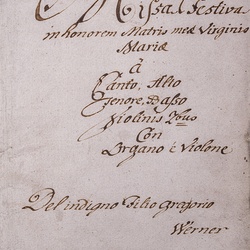 Missa Festiva
in honorem Matris meæ Virginis
Mariæ
à
Canto, Alto
Tenore, Baßo
Violinis 2bus
Con
Organo è Violone
Del indigno Filio Gregorio
Werner